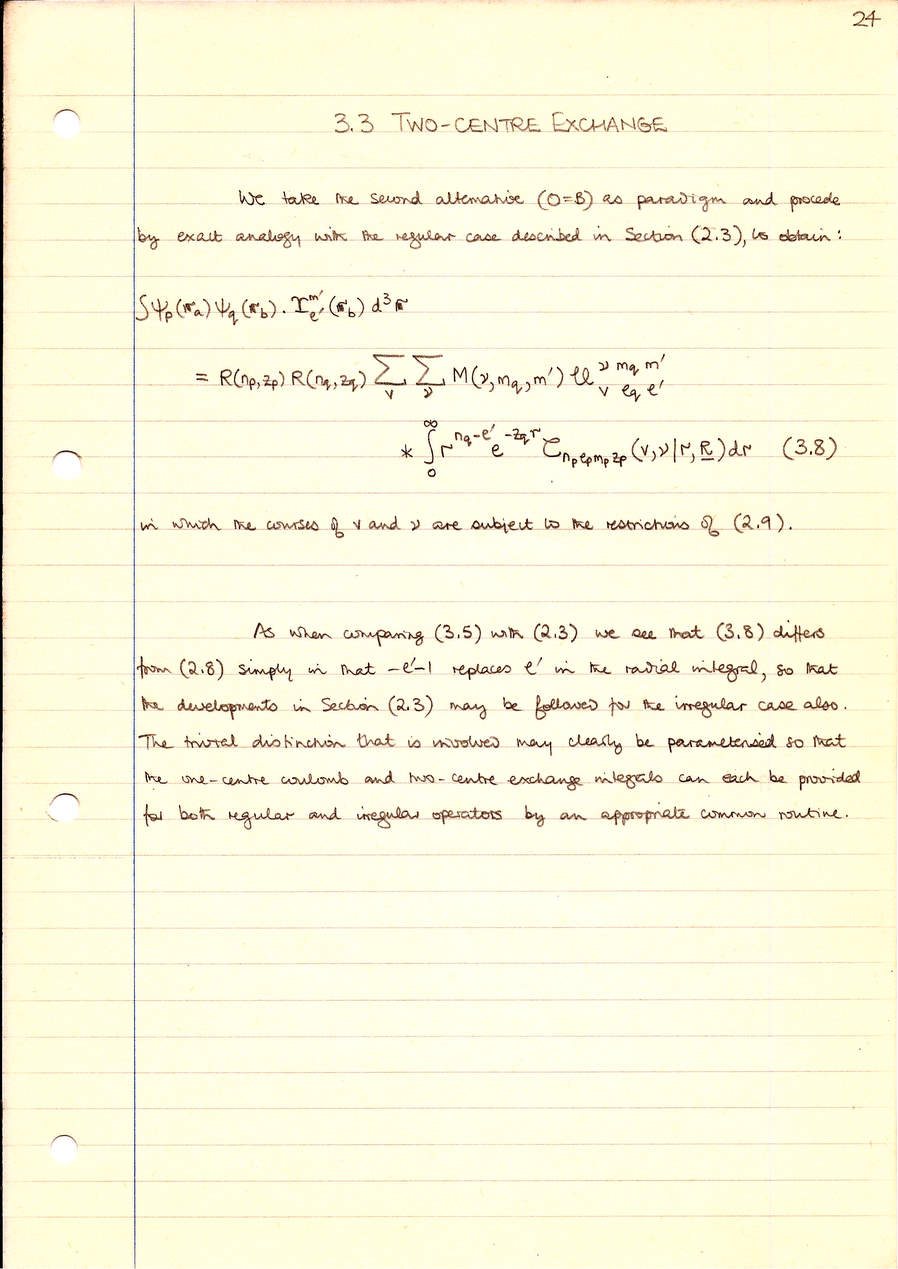 24
3.3 TWO-CENTRE EXCHANGE
We take the second alternative (O=B) as paradigm and procede
by exact analogy with the regular case described in Section (2.3), to obtain:
∫ψp(𝐫a)ψq(𝐫b).Υ_ℓ'^m'(𝐫b) d³𝐫
= R(np,zp) R(nq,zq) ∑_v ∑_ν M(ν,mq,m') 𝒰 ^ν mq m' _v ℓq ℓ'
* ∫₀^∞ r^(nq-ℓ') e^(-zqr) 𝒯_npℓpmpzp (v,ν|r,R) dr (3.8)
in which the courses of v and ν are subject to the restrictions of (2.9).
As when comparing (3.5) with (2.3) we see that (3.8) differs
from (2.8) simply in that -ℓ'-1 replaces ℓ' in the radial integral, so that
the developments in Section (2.3) may be followed for the irregular case also.
The trivial distinction that is involved may clearly be parameterised so that
the one-centre coulomb and two-centre exchange integrals can each be provided
for both regular and irregular operators by an appropriate common routine.